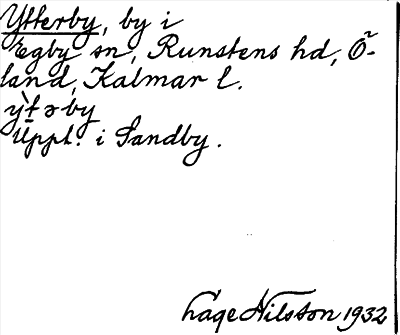 Ytterby, by i
Egby sn, Runstens hd, Ö-
land, Kalmar l.
ỳt̠əby
Uppt. i Sandby.
Åage Nilsson 1932